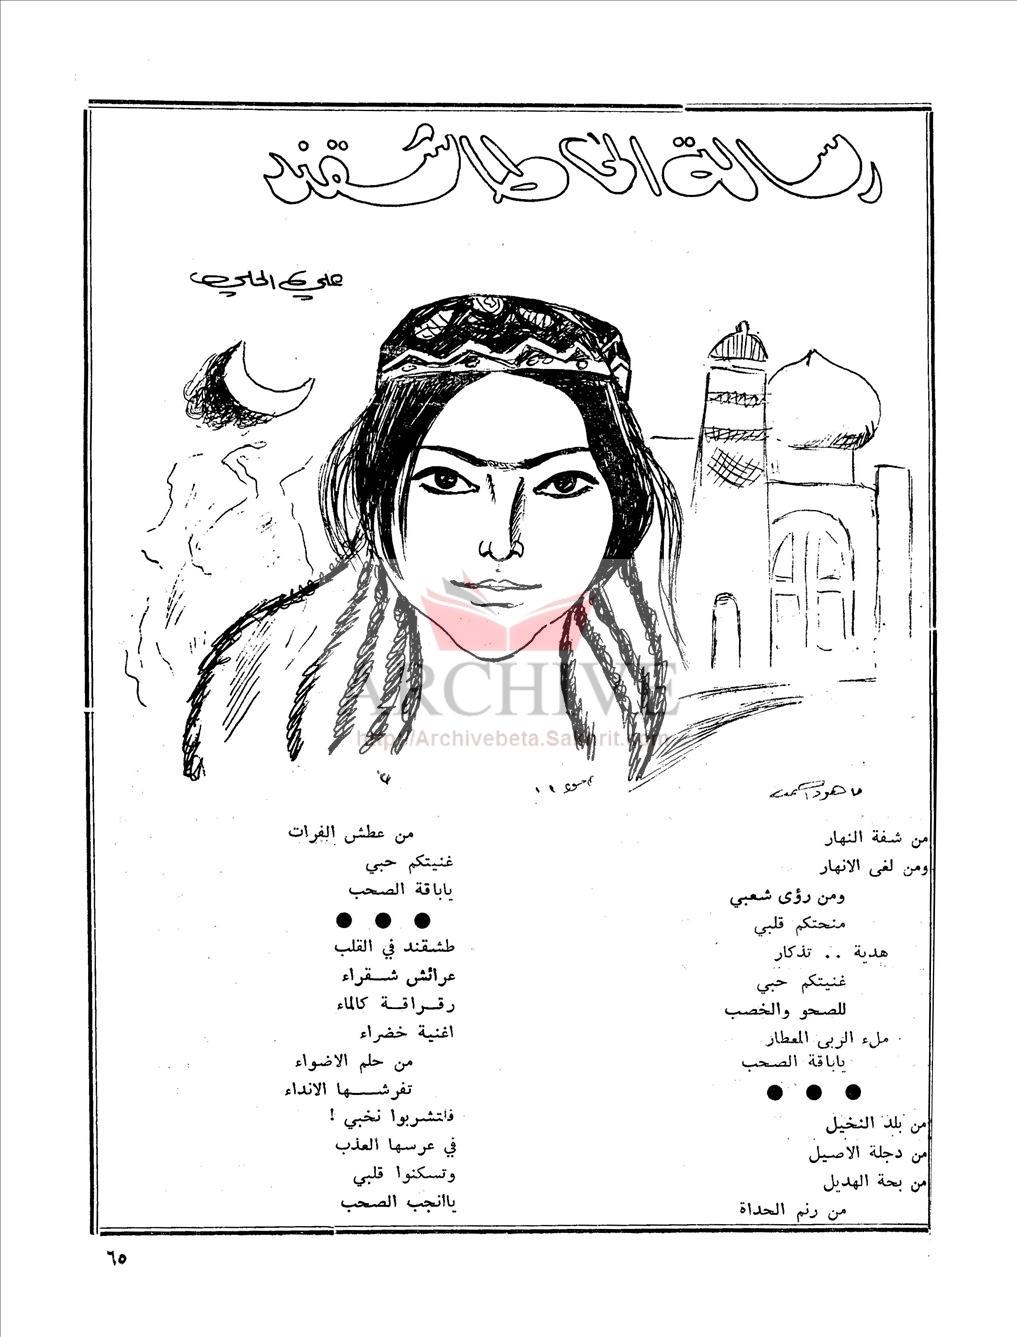 رسالة الى طاشقند
علي الحلي
ARCHIVE
http://Archivebeta.Sakhrit.com
من شفة النهار
ومن لغى الانهار
ومن رؤى شعبي
منحتكم قلبي
هدية .. تذكار
غنيتكم حبي
للصحو والخصب
ملء الربى المعطار
ياباقة الصحب
● ● ●
من بلد النخيل
من دجلة الاصيل
من بحة الهديل
من رنم الحداة
من عطش الفرات
غنيتكم حبي
ياباقة الصحب
● ● ●
طشقند في القلب
عرائش شقراء
رقراقة كالماء
اغنية خضراء
من حلم الاضواء
تفرشها الانداء
فلتشربوا نخبي !
في عرسها العذب
وتسكنوا قلبي
ياانجب الصحب
٦٥